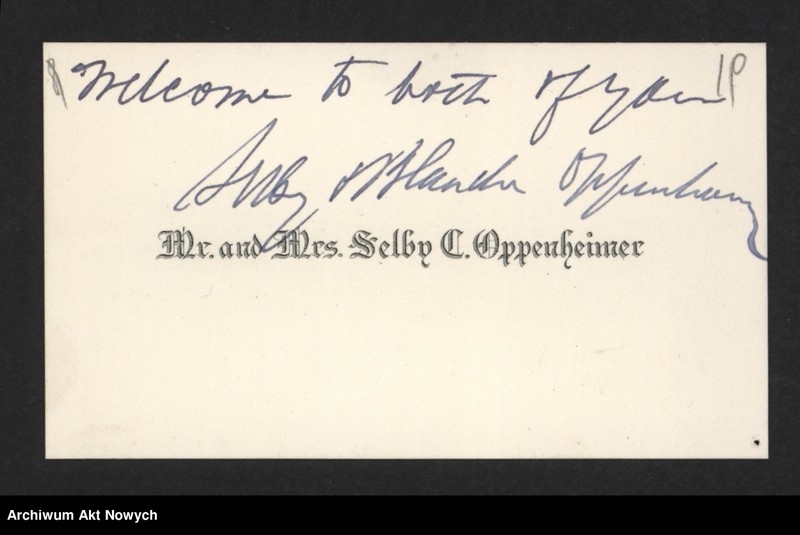 Welcome to both of you
Selby & Blanche Oppenheimer
Mr. and Mrs. Selby C. Oppenheimer
Archiwum Akt Nowych